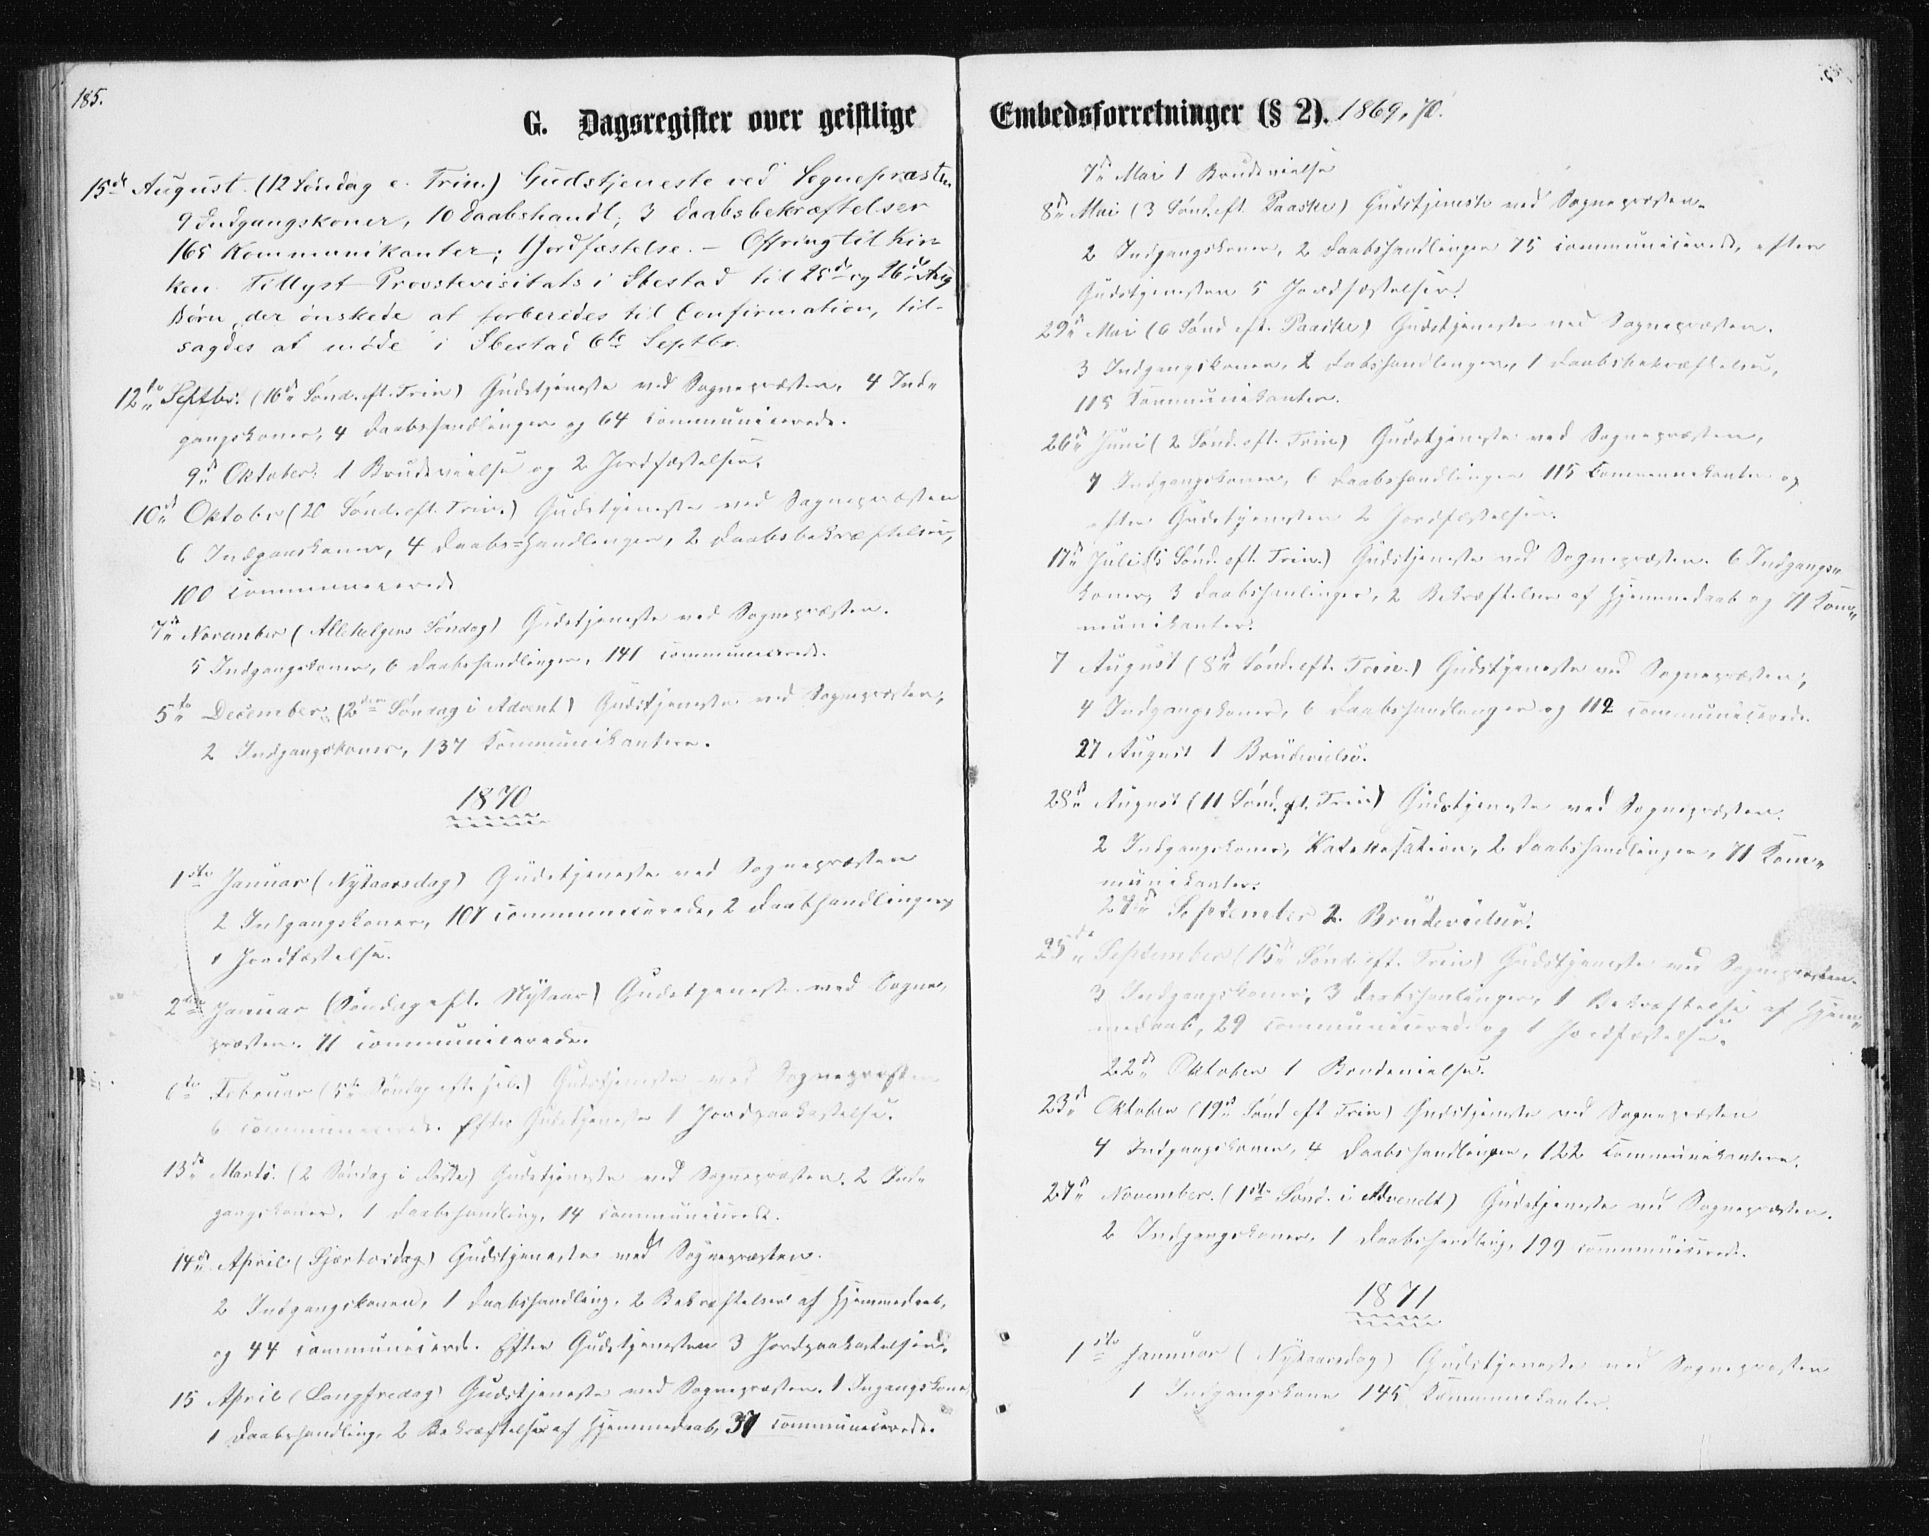 185.
G. Dagsregister over geistlige Embedsforretninger (§ 2). 1869, 70.
15de August (12 Søndag e. Trin.) Gudstjeneste ved Sognepræsten
9 Indgangskoner, 10 Daabshandl; 3 Daabsbekræftelser
165 Kommunikanter; 1 Jordfæstelse. – Offring til Kir-
ken. Tillyst Provstevisitats i Ibestad til 25de og 26de Aug
Børn, der ønskede at forberedes til Confirmation, til-
sagdes at møde i Ibestad 6te Septbr.
12te Septbr. (16de Sønd. eft. Trin) Gudstjeneste ved Sognepræsten, 4 Ind-
gangskoner, 4 Daabshandlinger og 64 communicerede.
9de Oktober: 1 Brudevielse og 2 Jordfæstelser.
10de Oktober (20 Sønd. eft. Trin.) Gudstjeneste ved Sognepræsten
6 Indganskoner, 4 Daabs-handlinger, 2 Daabsbekræftelser,
100 communicerede
7de November (Allehelgens Søndag) Gudstjeneste ved Sognepræsten.
5 Indgangskoner, 6 Daabshandlinger, 141 communicerede.
5te December (2den Søndag i Advent) Gudstjeneste ved Sognepræsten,
2 Indgangskoner, 137 Kommunikantere.
1870
1ste Januar (Nytaarsdag) Gudstjeneste ved Sognepræsten
2 Indgangskoner, 107 communicerede, 2 Daabhandlinger,
1 Jordfæstelse.
2den Januar (Søndag eft. Nytaar) Gudstjeneste ved Sogne-
præsten. 71 communicerede.
6te Februar (5te Søndag efte Jul.) Gudstjeneste ved Sognepræsten
6 communicerede. Efter Gudstjeneste 1 Jordpaakastelse.
13de Marts. (2 Søndag i Faste) Gudstjeneste ved Sognepræsten. 2 Ind-
gangskoner, 1 Daabshandling, 14 communicerede.
14de April (Skjærtorsdag) Gudstjeneste ved Sognepræsten.
2 Indgangskoner, 1 Daabshandling, 2 Bekræftelser af Hjemmedaab,
og 44 communicerede. Efter Gudstjenesten 3 Jordpaakastelser.
15 April (Langfredag) Gudstjeneste ved Sognepræsten. 1 Ingangskone
1 Daabshandling, 2 Bekræftelser af Hjemmedaab, 37 communicerede.
7de Mai 1 Brudevielse
8de Mai (3 Sønd. eft. Paaske) Gudstjeneste ved Sognepræsten.
2 Indgangskoner, 2 Daabshandlinger 75 communicerede, efter
Gudstjenesten 5 Jordfæstelser.
29de Mai (6 Sønd eft. Paaske) Gudstjeneste ved Sognepræsten.
3 Indgangskoner, Dabshandlinger, 1 Daabsbekræftelse,
115 Kommunikanter.
26de Juni (2 Sønd. eft. Trin) Gudstjeneste ved Sognepræsten,
7 Indgangskoner, 6 Daabshandlinger 115 Communikanter og
efter Gudstjenesten 2 Jordfæstelser.
17de Juli (5 Sønd. eft. Trin.) Gudstjeneste ved Sognepræsten. 6 Indgangs-
koner, 3 Daabshanlinger, 2 Bekræftelser af Hjemmedaab og 71 Kom-
munikanter.
7 August (8de Sønd. eft. Trin.) Gudstjeneste ved Sognepræsten;
4 Indgangskoner, 6 Daabshandlinger og 112 communicerede.
27 August 1 Brudevielse.
28de August (11 Sønd. eft. Trin) Gudstjeneste ved Sognepræsten.
2 Indgangskoner, Katekesation, 2 Daabshandlinger, 71 Kom-
munikanter.
24de September 2 Brudevielser.
25de September (15de Sønd. eft. Trin) Gudstjeneste ved Sognepræsten.
3 Indgangskoner, 3 Daabshanlinger, 1 Bekræftelse af Hjem-
medaab, 29 communicerede og 1 Jordfæstelse.
22de Oktober 1 Brudevielse.
23de Oktober (19de Sønd eft Trin) Gudstjeneste ved Sognepræsten
4 Indgangskoner, 4 Daabshandlinger, 122 Communikantere.
27de November. (1ste Sønd. i Advendt) Gudstjeneste ved Sognepræsten.
2 Indgangskoner, 1 Daabshandling, 199 communicerede.
1871
1ste Januar (Nytaarsdag) Gudstjeneste ved Sognepræsten
1 Indgangskone 145 Kommunikanter.